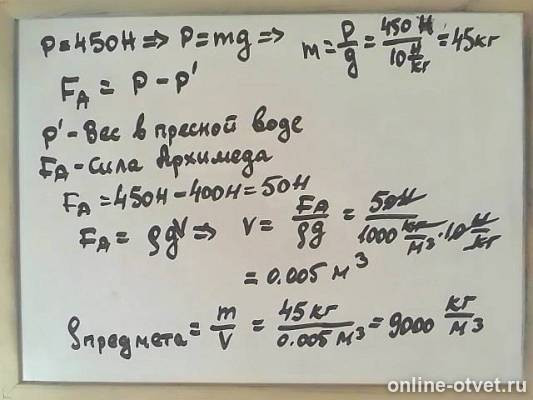 P=450Н => P=mg => m = P/g = 450 Н / 10 Н/кг = 45кг
F_A = P - P'
P' - Вес в пресной воде
F_A - Сила Архимеда
F_A = 450Н - 400Н = 50Н
F_A = ρgV => V = F_A / ρg = 50Н / 1000 кг/м³ · 10 Н/кг
= 0.005 м³
ρ предмета = m/V = 45кг / 0.005 м³ = 9000 кг/м³
online-otvet.ru